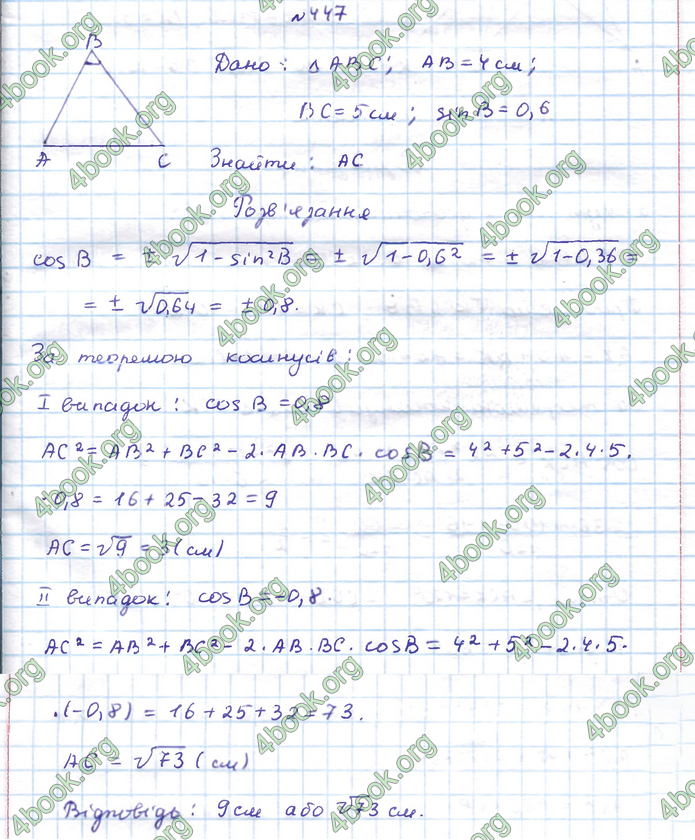 №447
B
A
C
Дано: △ABC; AB=4см;
BC=5см; sinB=0,6
Знайти: AC
Розв'язання
cos B = ± √1-sin²B = ± √1-0,6² = ± √1-0,36 =
= ± √0,64 = ± 0,8.
За теоремою косинусів:
I випадок: cos B = 0,8
AC² = AB² + BC² - 2·AB·BC·cosB = 4²+5²-2·4·5·
·0,8 = 16+25-32=9
AC = √9 = 3(см)
II випадок: cosB = -0,8.
AC² = AB² + BC² - 2·AB·BC·cosB = 4²+5²-2·4·5·
·(-0,8) = 16+25+32=73.
AC = √73 (см)
Відповідь: 9см або √73 см.
4book.org